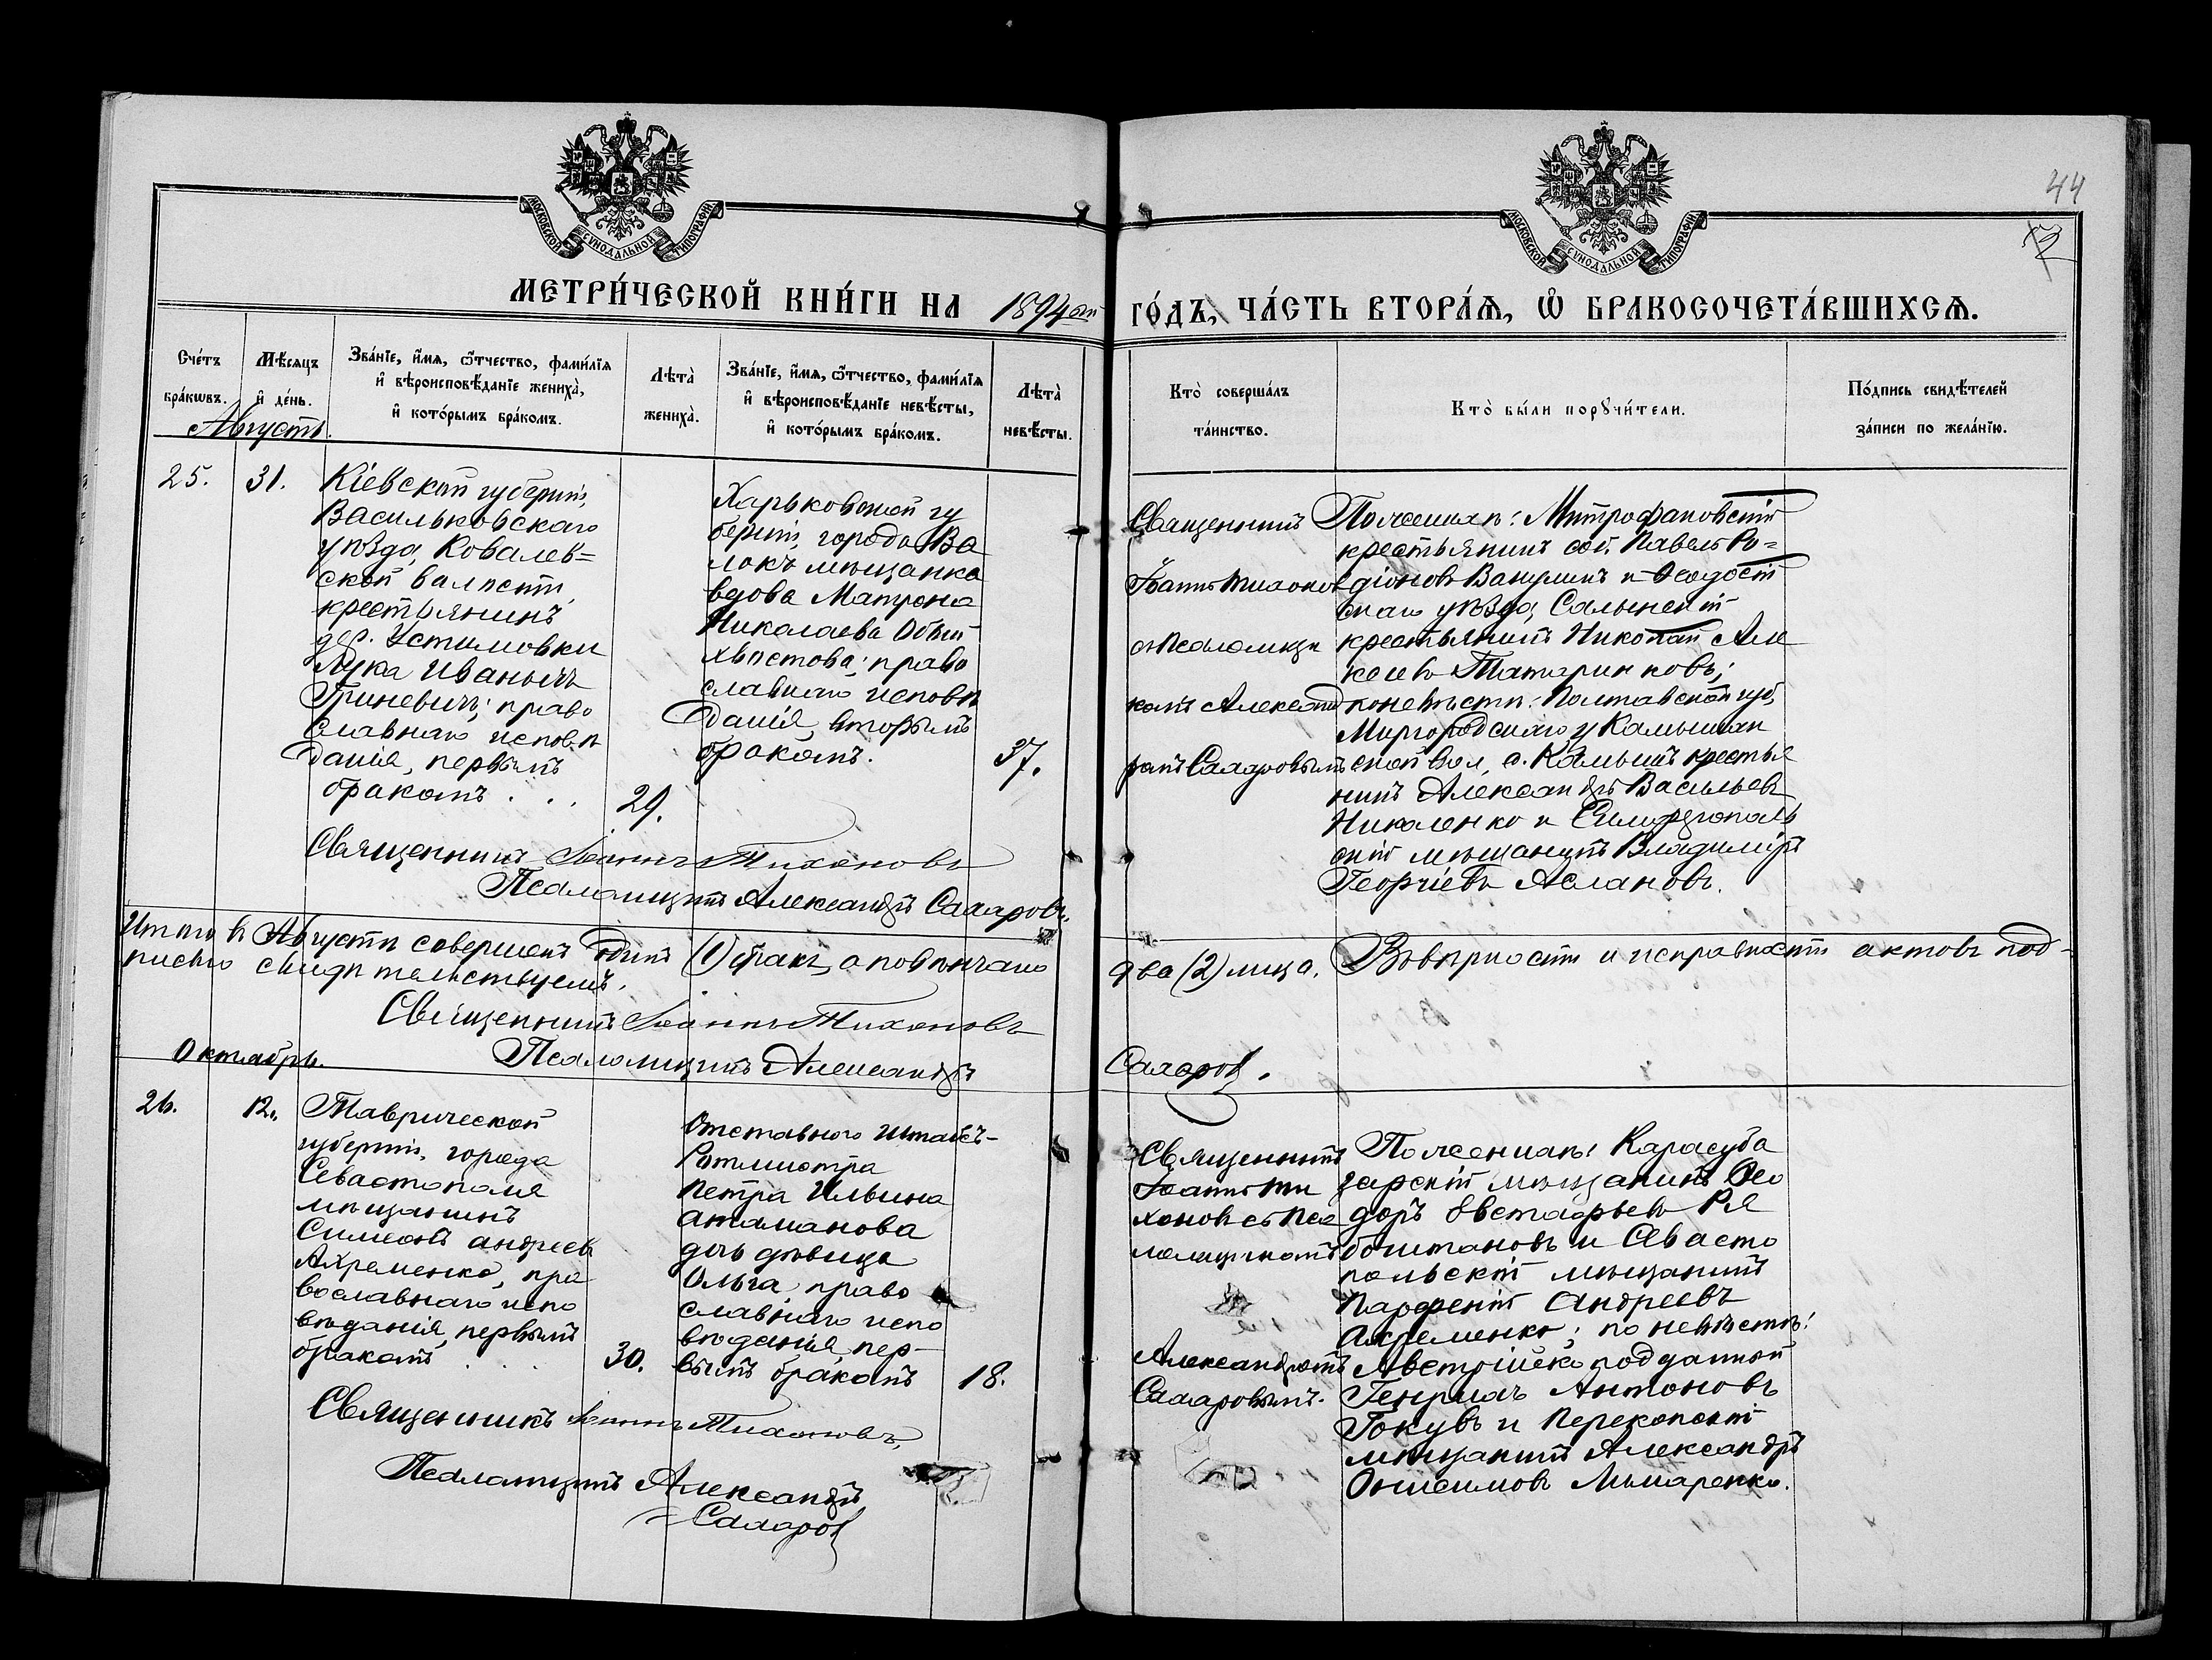 44
МОСКОВСКОЙ СѴНОДАЛЬНОЙ ТИПОГРАФІИ
МОСКОВСКОЙ СѴНОДАЛЬНОЙ ТИПОГРАФІИ
МЕТРИ́ЧЕСКОЙ КНИ́ГИ НА 1894 ой ГО́ДЪ, ЧА́СТЬ ВТОРА́Ѧ, Ѡ҆ БРАКОСОЧЕТА́ВШИХСѦ.
Сче́тъ бра́кѡвъ.
Мѣ́сяцъ и҆ де́нь.
Зва́нїе, и҆́мѧ, ѻ҆́тчество, фами́лїѧ
и҆ вѣроисповѣ́данїе жениха̀,
и҆ кото́рымъ бра́комъ.
Лѣта̀ жениха̀.
Зва́нїе, и҆́мѧ, ѻ҆́тчество, фами́лїѧ
и҆ вѣроисповѣ́данїе невѣ́сты,
и҆ кото́рымъ бра́комъ.
Лѣта̀ невѣ́сты.
Кто̀ соверша́лъ та́инство.
Кто̀ бы́ли порꙋчи́тели.
По́дпись свидѣ́телей за́писи по жела́нїю.
Августъ.
25.
31.
Кіевской губерніи,
Васильковскаго
уѣзда, Ковалев=
ской валости,
крестьянинъ
дер. Устимовки
Лука Иванычъ
Гриневичъ; право
славнаго исповѣ
данія, первымъ
бракомъ . . .
29.
Харьковской гу
берніи, города Ва
локъ мѣщанка
вдова Матрона
Николаева Объи
хвостова; право
славнаго исповѣ
данія, вторымъ
бракомъ.
37.
Священникъ
Іоаннъ Тихонов
съ Псаломщи
комъ Александ
ромъ Сахаровымъ
По женихѣ: Митрофановскій
крестьянинъ соб. Павелъ Ро=
діоновъ Вакулинъ и Ѳеодосій
скаго уѣзда, Салынскій
крестьянинъ Николай Але
кеевъ Татаринковъ;
по невѣстѣ: Полтавской губ,
Миргородскаго у Камышан
ской вол, с. Камышъ крестья
нинъ Александръ Васильевъ
Николенко и Симферополь
скій мѣщанинъ Владиміръ
Георгіевъ Аслановъ.
Священникъ Іоаннъ Тихоновъ
Псаломщикъ Александръ Сахаровъ.
Итого въ Августѣ совершенъ одинъ (1) бракъ, а повѣнчано два (2) лица. Въ вѣрности и исправности актовъ под-
писью свидѣтельствуемъ.
Священникъ Іоаннъ Тихоновъ
Псаломщикъ Александръ Сахаровъ.
Октябрь.
26.
12.
Таврической
губерніи, города
Севастополя
мѣщанинъ
Симеонъ Андреевъ
Ахременко, пра
вославнаго испо
вѣданія, первымъ
бракомъ . . .
30.
Отставного Штабсъ-
Ротмистра
Петра Ильина
Атаманова
дочь дѣвица
Ольга, право
славнаго испо
вѣданія, пер-
вымъ бракомъ
18.
Священникъ
Іоаннъ Ти
хоновъ съ Пса
ломщикомъ
Александромъ
Сахаровымъ.
По женихѣ: Карасуба
зарскій мѣщанинъ Ѳео
доръ Евстафьевъ Ря
боштановъ и Севасто
польскій мѣщанинъ
Парфеній Андреевъ
Ахременко; по невѣстѣ:
Австрійско подданный
Генрихъ Антоновъ
Гокувъ и Перекопскій
мѣщанинъ Александръ
Онисимовъ Лимаренко.
Священникъ Іоаннъ Тихоновъ,
Псаломщикъ Александръ
Сахаровъ